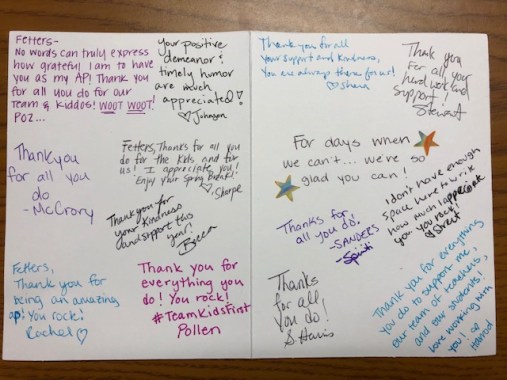 Fetters-
No words can truly express
how grateful I am to have
you as my API Thank you
for all you do for our
Team & kiddos! WOOT WOOT!
Poz...
your positive
demeanor &
timely humor
are much
appreciated!
Johnson
Thank you
for all you
do
-McCrory
Fetters, Thanks for all you
do for the kids and for
us! I appreciate you!
Enjoy your Spring break!
Sharpe
Thank you for
your kindness
and support this
year!
Becca
Fetters,
Thank you for
being an amazing
ap! You rock!
Rachel
Thank you for
everything you
do! You rock!
#TeamKidsFirst
Pollen
Thank you for all
your support and kindness,
You are always there for us!
Shara
Thank you
for all your
hard work and
support!
Stewart
For days when
we can't... we're so
glad you can!
I don't have enough
space here to write
how much I appreciate
you. You rock!
Street
Thanks for
all you do!
-SANDERS
Thanks
for all
you do!
S Harris
Thank you for everything
you do to support me,
our team of teachers,
and our students! I
love working with
you!